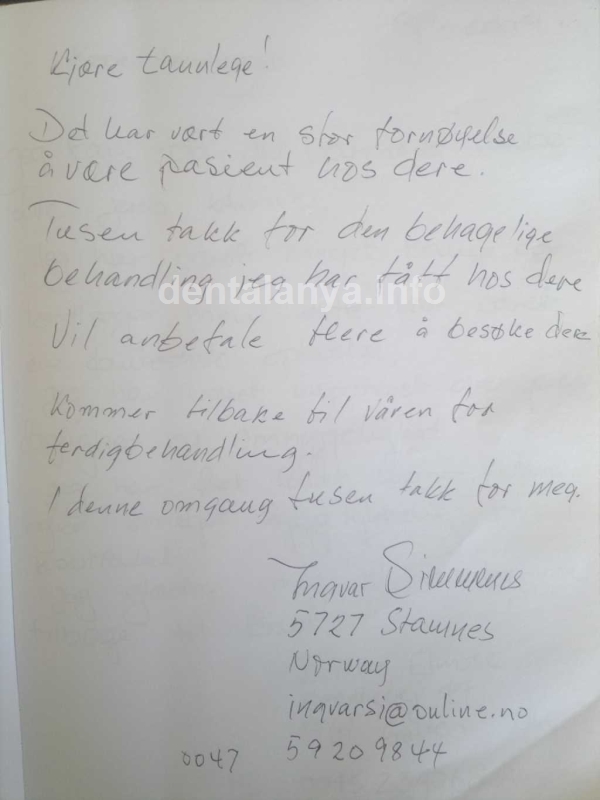 Kjære tannlege!
Det har vært en stor fornøyelse
å være pasient hos dere.
Tusen takk for den behagelige
behandling jeg har fått hos dere
dentalanya.info
Vil anbefale flere å besøke dere
Kommer tilbake til våren for
ferdigbehandling.
I denne omgang tusen takk for meg.
Ingvar
5727 Stamnes
Norway
ingvarsi@online.no
0047 59209844